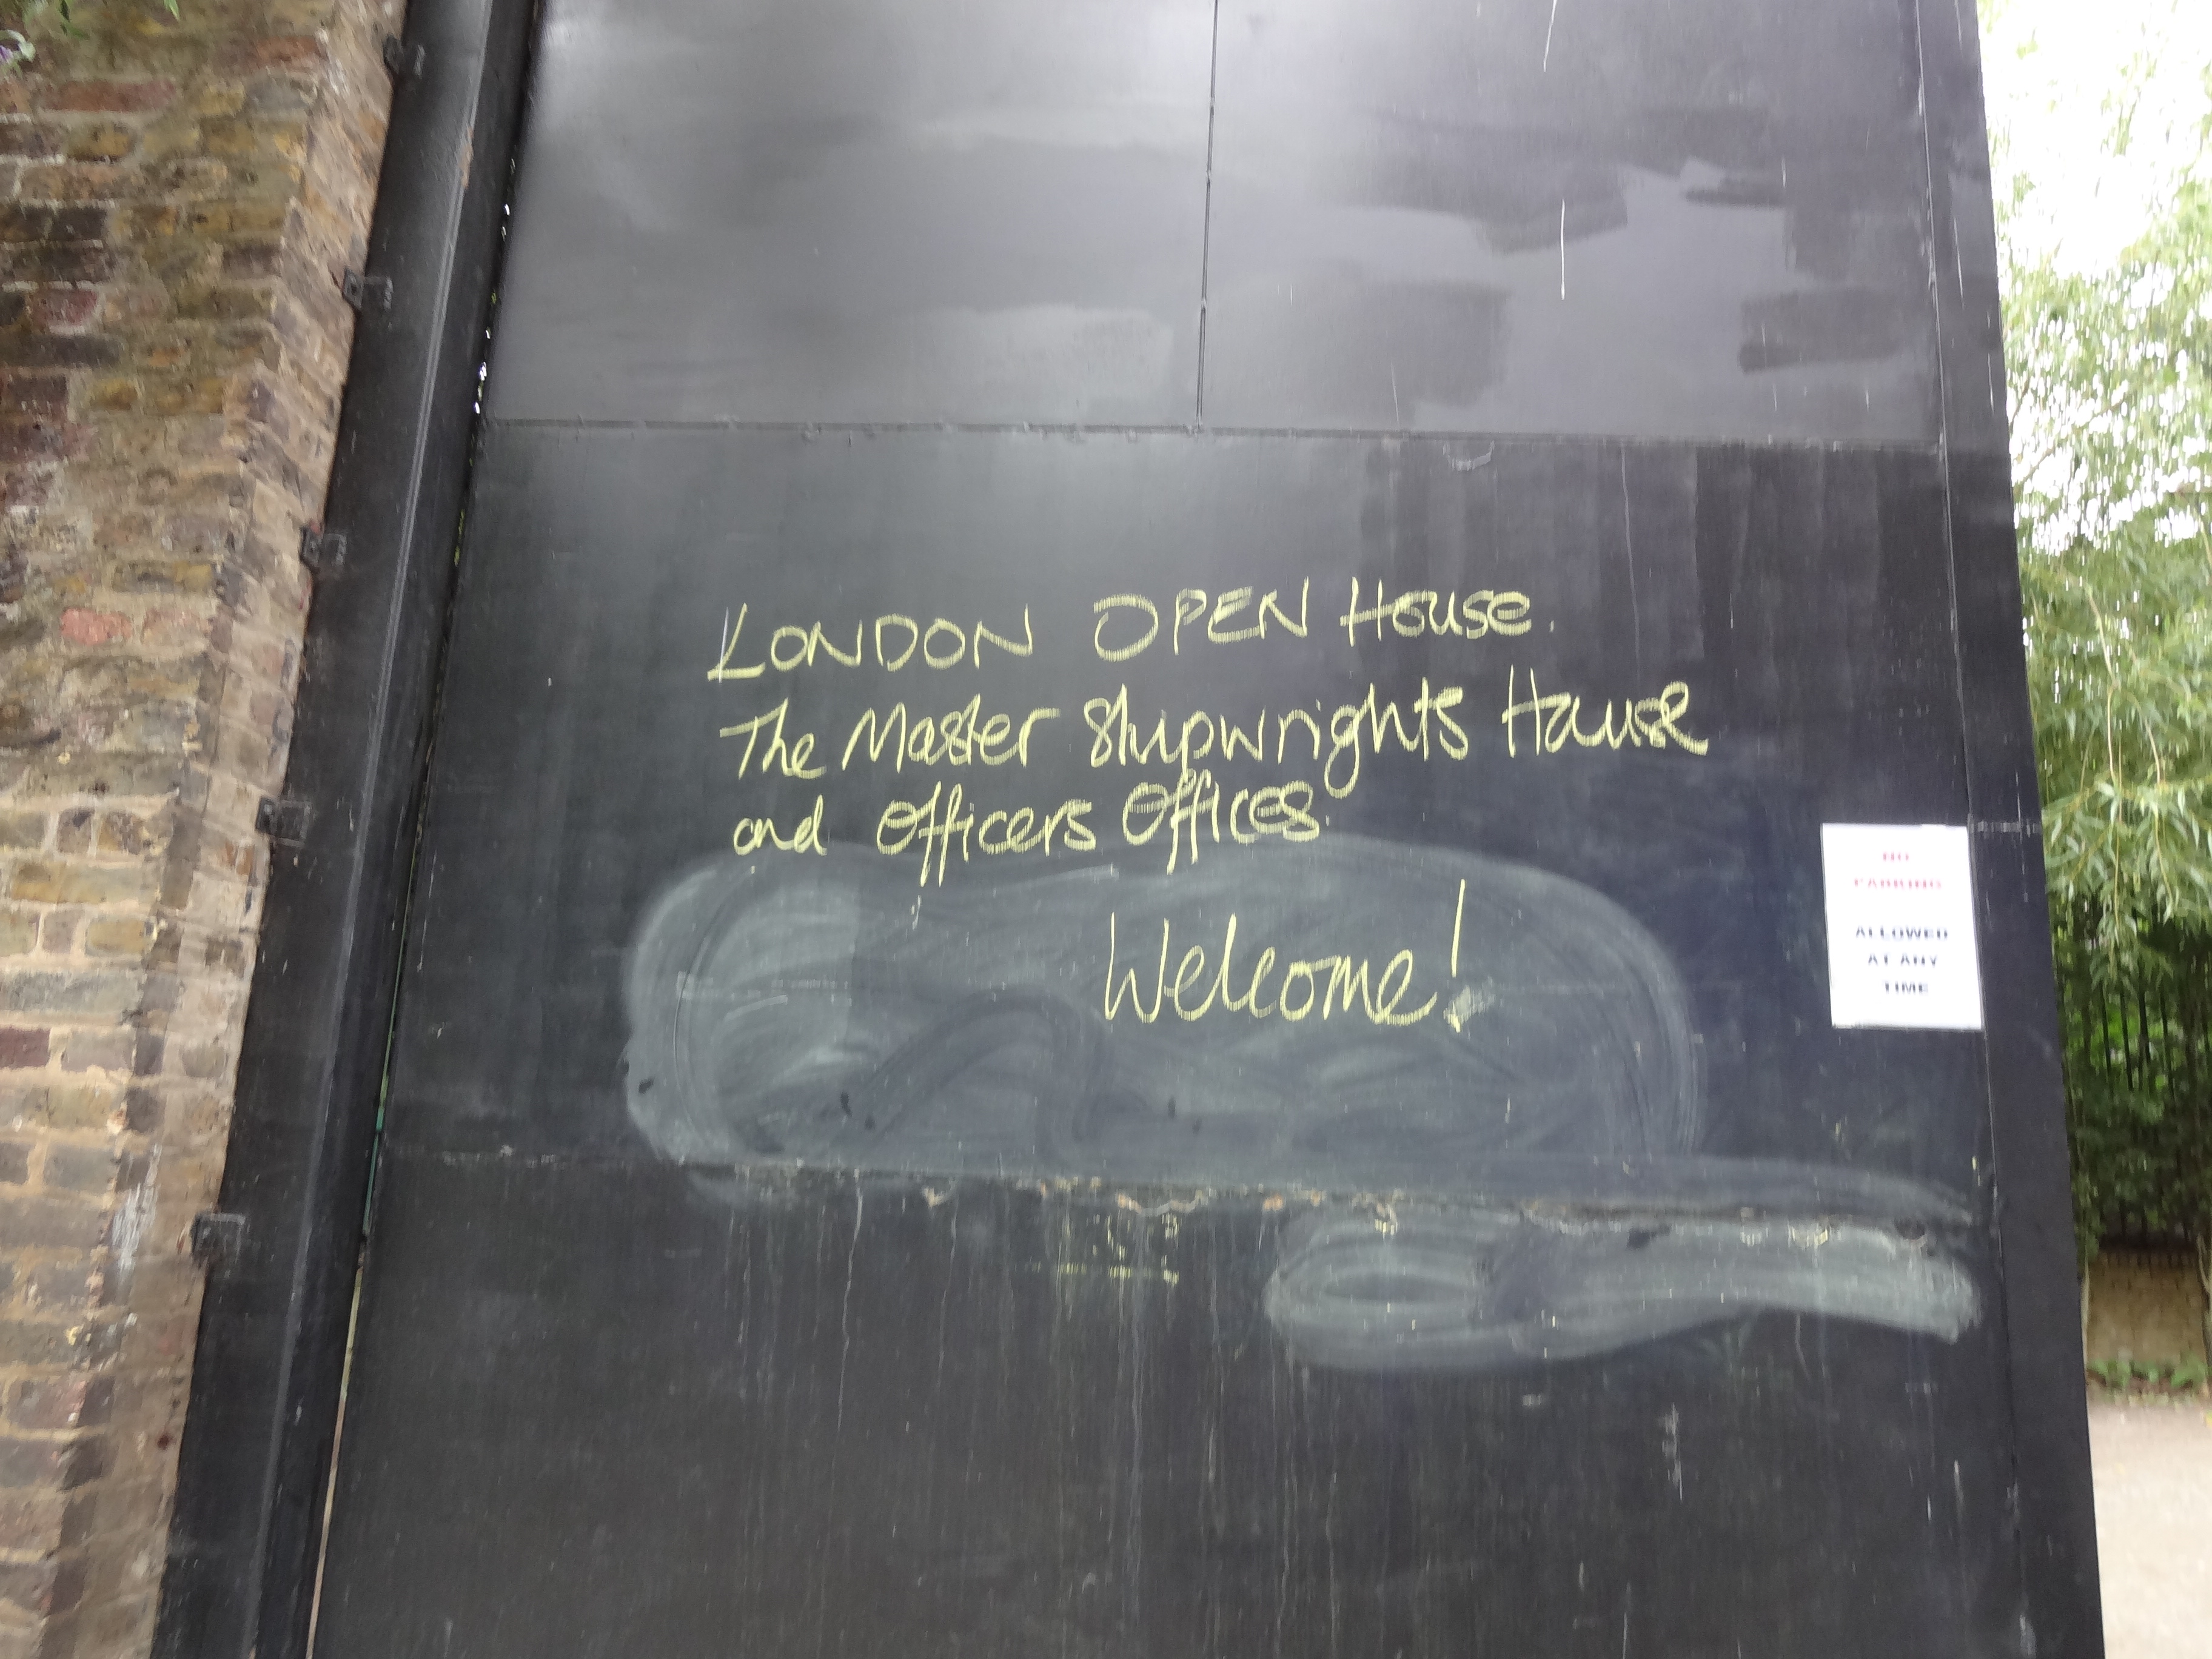 LONDON OPEN HOUSE.
The Master Shipwrights House
and Officers Offices.
Welcome!
NO
PARKING
ALLOWED
AT ANY
TIME